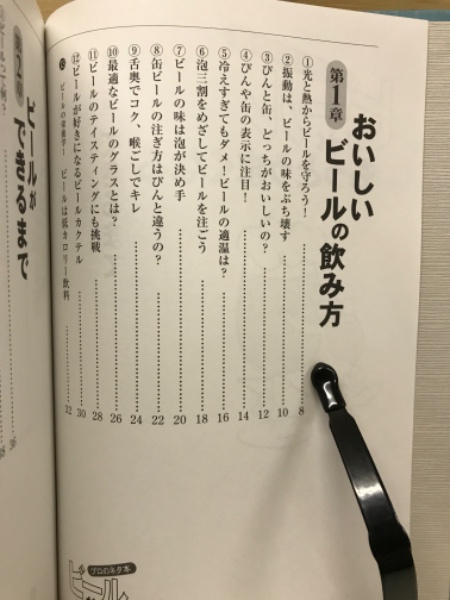 第1章
おいしい
ビールの飲み方
①光と熱からビールを守ろう!……8
②振動は、ビールの味をぶち壊す……10
③びんと缶、どっちがおいしいの?……12
④びんや缶の表示に注目!……14
⑤冷えすぎてもダメ!ビールの適温は?……16
⑥泡三割をめざしてビールを注ごう……18
⑦ビールの味は泡が決め手……20
⑧缶ビールの注ぎ方はびんと違うの?……22
⑨舌奥でコク、喉ごしでキレ……24
⑩最適なビールのグラスとは?……26
⑪ビールのテイスティングにも挑戦……28
⑫ビールが好きになるビールカクテル……30
ビールの栄養学1 ビールは低カロリー飲料……32
第2章
ビールが
できるまで
36
プロのネタ本
ビール